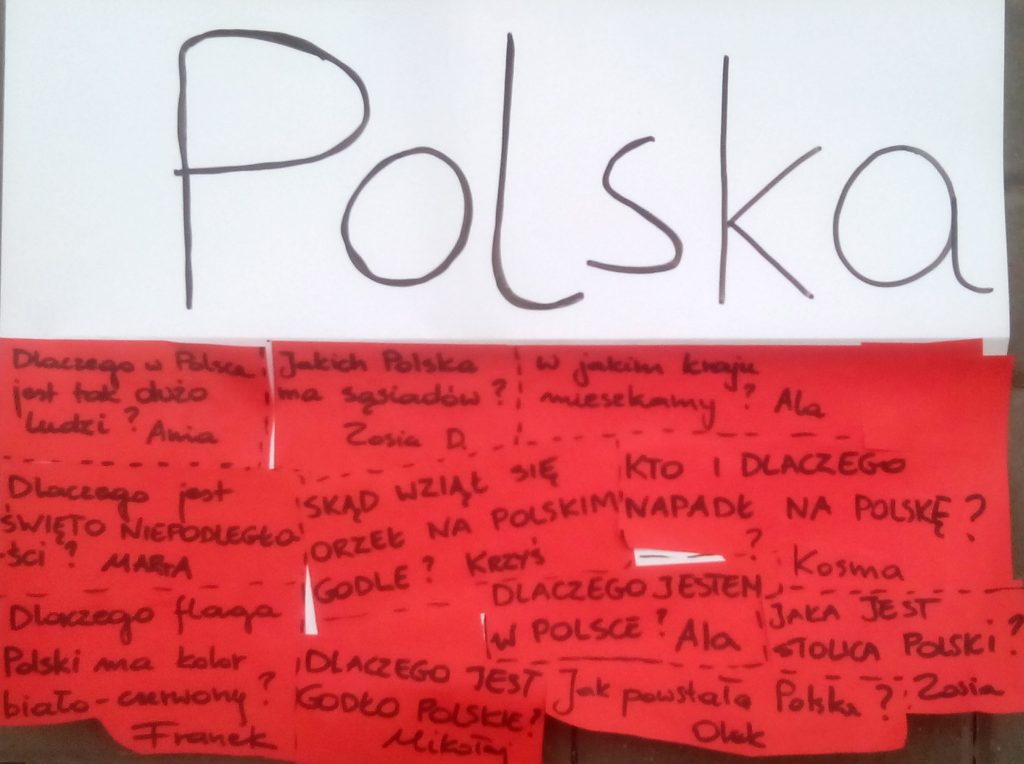 Polska
Dlaczego w Polsce
jest tak dużo
ludzi? Ania
Jakich Polska
ma sąsiadów?
Zosia D.
W jakim kraju
mieszkamy? Ala
Dlaczego jest
ŚWIĘTO NIEPODLEGŁO
ŚCI? MARTA
SKĄD WZIĄŁ SIĘ
ORZEŁ NA POLSKIM
GODLE? KRZYŚ
KTO I DLACZEGO
NAPADŁ NA POLSKĘ?
?
Kosma
Dlaczego flaga
Polski ma kolor
biało-czerwony?
Franek
DLACZEGO JEST
GODŁO POLSKIE?
Mikołaj
DLACZEGO JESTEM
W POLSCE? Ala
JAKA JEST
STOLICA POLSKI?
Zosia
Jak powstała Polska?
Olek